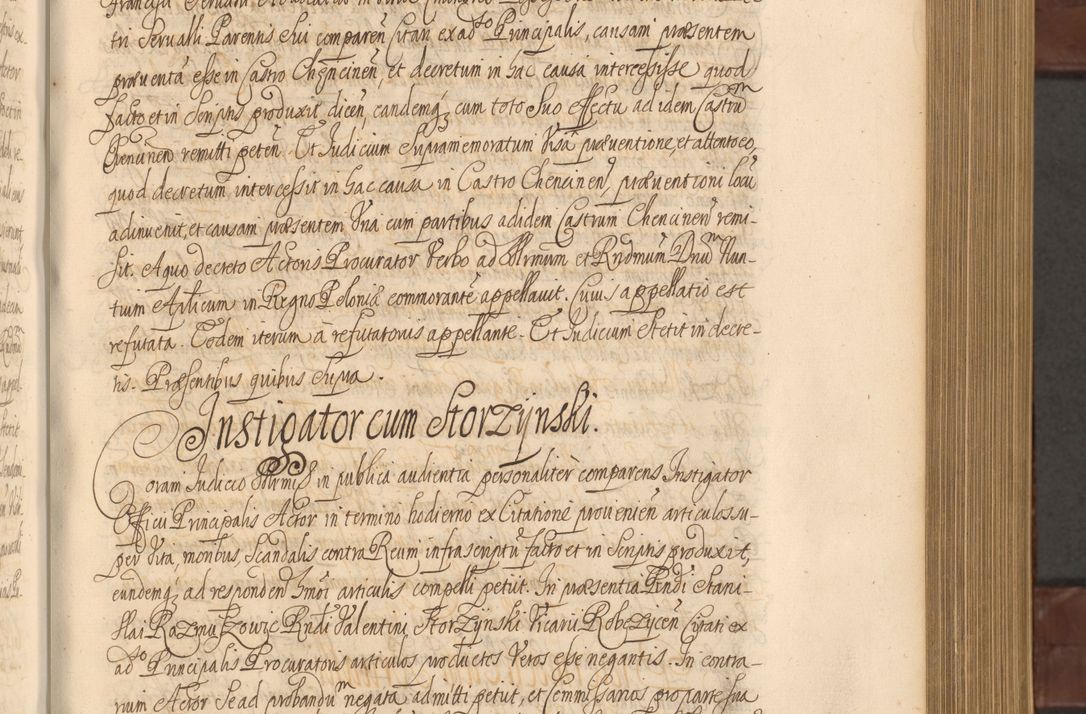 tri Servalli Parentis Sui comparen̄ Citati ex ad̄so Principalis, causam præsentem
præventā esse in Castro Chencinen̄, et decretum in hac causa intercessisse quod
facto et in Scriptis produxit dicen̄, eandemq₃ cum toto Suo effectu ad idem Castrūm
Chencinen̄ remitti peten̄. Et Judicium Supramemoratum Visā præventione, et attento eo,
quod decretum intercessit in hac causa in Castro Chencinen̄, præventioni locū
adinvenit, et causam præsentem Una cum partibus ad idem Castrum Chencinen̄ remi-
sit. A quo decreto Actoris Procurator Verbo ad Illrmum et Rndmum Dnūm Nun-
tium Aplicum in Regno Poloniæ commorantē appellavit. Cuius appellatio est
refutata. Eodem iterum à refutatoriis appellante. Et Judicium Stetit in decre-
tis. Præsentibus quibus Supra.
Instigator cum Storzÿnski.
Coram Judicio in publica audientia personaliter comparens Instigator
Officii Principalis Actor in termino hodierno ex Citatione provenien̄ articulos su-
per Vita, moribus, Scandalis contra Reum infrascriptū facto et in Scriptis produxit,
eundemq₃ ad responden̄ hm̄oi articulis compelli petiit. In præsentia Rndi Stani-
slai Razmuszowic Rndi Valentini Storzÿnski Vicarii Robczycen̄ Citati ex
ad̄so Principalis Procuratoris articulos productos Veros esse negantis. In contra-
rium Actor Se ad probandūm negata admitti petiit, et Commissarios pro parte sua